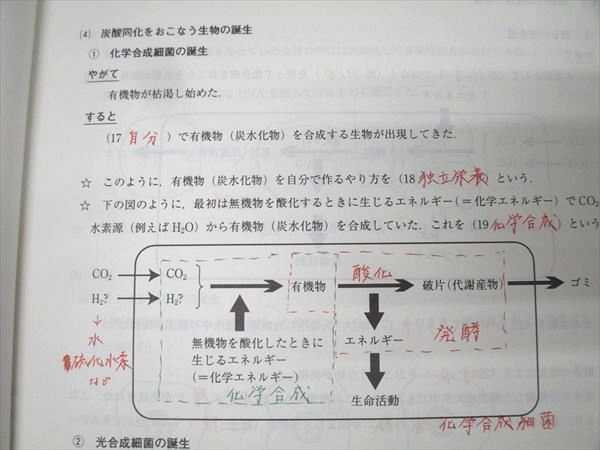 (4) 炭酸同化をおこなう生物の誕生
① 化学合成細菌の誕生
やがて
有機物が枯渇し始めた.
すると
(17 自分 ) で有機物（炭水化物）を合成する生物が出現してきた.
☆ このように, 有機物（炭水化物）を自分で作るやり方を (18 独立栄養 ) という.
☆ 下の図のように, 最初は無機物を酸化するときに生じるエネルギー(＝化学エネルギー) で CO2
水素源（例えば H2O）から有機物（炭水化物）を合成していた. これを (19 化学合成 ) とい
CO2 CO2
H2? H2?
有機物
酸化
破片（代謝産物）
ゴミ
水
硫化水素
など
無機物を酸化したときに
生じるエネルギー
(＝化学エネルギー)
化学合成
エネルギー
発酵
生命活動
化学合成細菌
② 光合成細菌の誕生